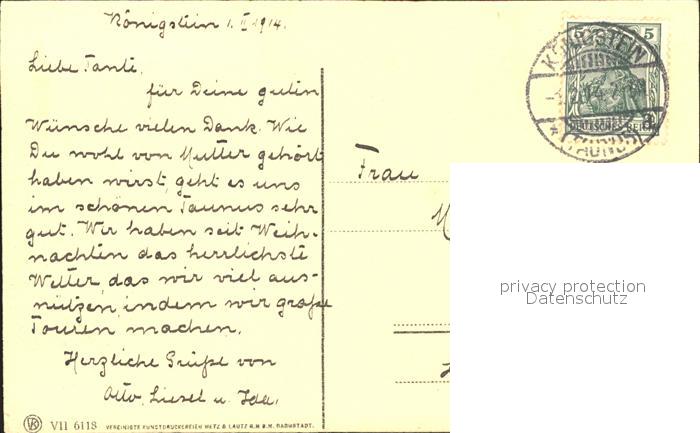 Königstein 1. II 1914.
Liebe Tante,
für Deine guten
Wünsche vielen Dank. Wie
Du wohl von Mutter gehört
haben wirst, geht es uns
im schönen Taunus sehr
gut. Wir haben seit Weih-
nachten das herrlichste
Wetter, das wir viel aus-
nützen, indem wir große
Touren machen.
Herzliche Grüße von
Otto, Liesel u. Ida.
Frau
M
5 5
DEUTSCHES REICH
KÖNIGSTEIN
(TAUNUS)
privacy protection
Datenschutz
VII 6118 VEREINIGTE KUNSTDRUCKEREIEN METZ & LAUTZ G.M.B.H. DARMSTADT.